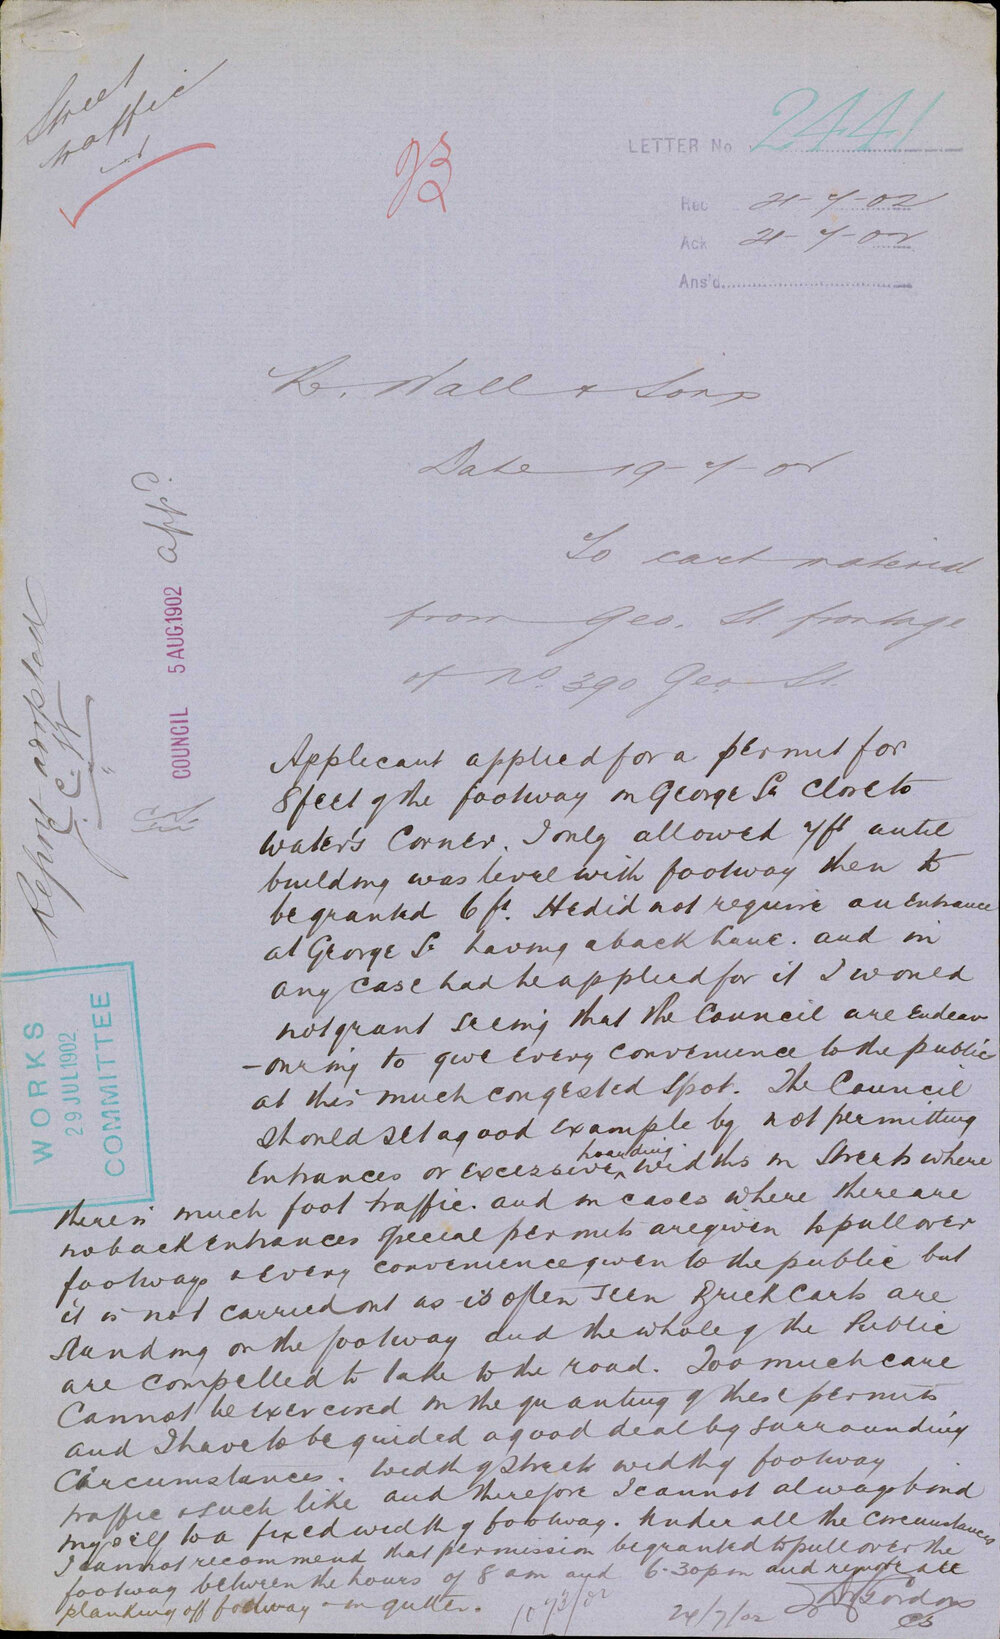 Street
traffic
LETTER No 2441
Rec 21-7-02
Ack 21-7-02
Ans'd
Re. Wall & Sons
Date 19-7-02
To cart material
from Geo. St frontage
of No. 390 Geo. St.
Report adopted
COUNCIL 5 AUG 1902 appd.
WORKS
29 JUL 1902
COMMITTEE
Applicant applied for a permit for
8 feet of the footway in George St close to
Water's Corner. I only allowed 7ft until
building was level with footway then to
be granted 6 ft. He did not require an entrance
at George St having a back lane. and in
any case had he applied for it I would
not grant seeing that the Council are Endeav
-ouring to give every convenience to the public
at this much congested spot. The Council
should set a good example by not permitting
Entrances or excessive hoarding widths in Streets where
there is much foot traffic. and in cases where there are
no back entrances special permits are given to pull over
footways & every convenience given to the public but
it is not carried out as is often seen Brick Carts are
standing on the footway and the whole of the Public
are compelled to take to the road. Too much care
Cannot be exercised in the granting of these permits
and I have to be guided a good deal by surrounding
Circumstances. Width of Streets width of footway
traffic & such like and therefore I cannot always bind
myself to a fixed width of footway. Under all the Circumstances
I cannot recommend that permission be granted to pull over the
footway between the hours of 8 am and 6.30 pm and remove all
planking off footway & in gutter.
24/7/02 Gordon
CS